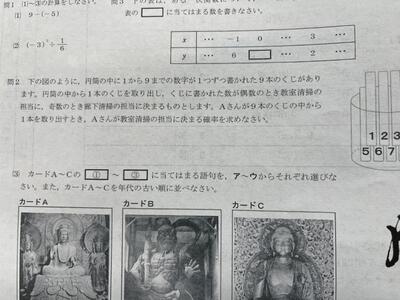 問1 (1)~(3)の計算をしなさい。
(1) 9－(－5)
(2) (－3)² ÷ 1/6
表の□に当てはまる数を書きなさい。
x … －1 0 … 3 …
y … 6 □ … 2 …
問2 下の図のように，円筒の中に1から9までの数字が1つずつ書かれた9本のくじがあり
ます。円筒の中から1本のくじを取り出し，くじに書かれた数が偶数のとき教室清掃の
担当に，奇数のとき廊下清掃の担当に決まるものとします。Aさんが9本のくじの中から
1本を取り出すとき，Aさんが教室清掃の担当に決まる確率を求めなさい。
1 2 3
5 6 7
(3) カードA～Cの ① ～ ③ に当てはまる語句を，ア～ウからそれぞれ選びな
さい。また，カードA～Cを年代の古い順に並べなさい。
カードA カードB カードC